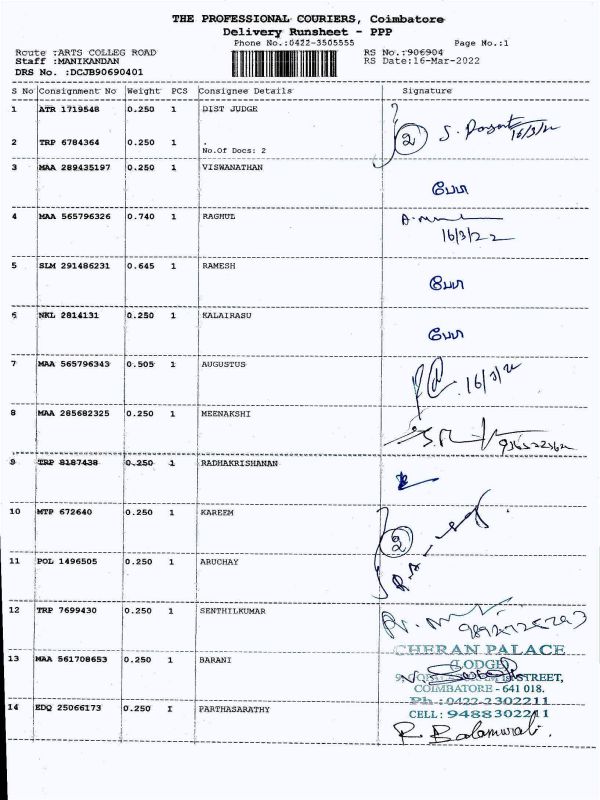 THE PROFESSIONAL COURIERS, Coimbatore
Delivery Runsheet - PPP
Phone No.:0422-3505555 Page No.:1
Route :ARTS COLLEG ROAD RS No.:906904
Staff :MANIKANDAN RS Date:16-Mar-2022
DRS No. :DCJB90690401
S No Consignment No Weight PCS Consignee Details Signature
1 ATR 1719548 0.250 1 DIST JUDGE
2 16/3/22
2 TRP 6784364 0.250 1 .
No.Of Docs: 2
3 MAA 289435197 0.250 1 VISWANATHAN
4 MAA 565796326 0.740 1 RAGHUL
16/3/22
5 SLM 291486231 0.645 1 RAMESH
6 NKL 2814131 0.250 1 KALAIRASU
7 MAA 565796343 0.505 1 AUGUSTUS
8 MAA 285682325 0.250 1 MEENAKSHI
9 TRP 8187438 0.250 1 RADHAKRISHANAN
10 MTP 672640 0.250 1 KAREEM
2
11 POL 1496505 0.250 1 ARUCHAY
12 TRP 7699430 0.250 1 SENTHILKUMAR
CHERAN PALACE
13 MAA 561708653 0.250 1 BARANI
(LODGE)
STREET,
COIMBATORE - 641 018.
14 EDQ 25066173 0.250 I PARTHASARATHY
Ph : 0422-2302211
CELL : 9488302211
R. Balamurali.